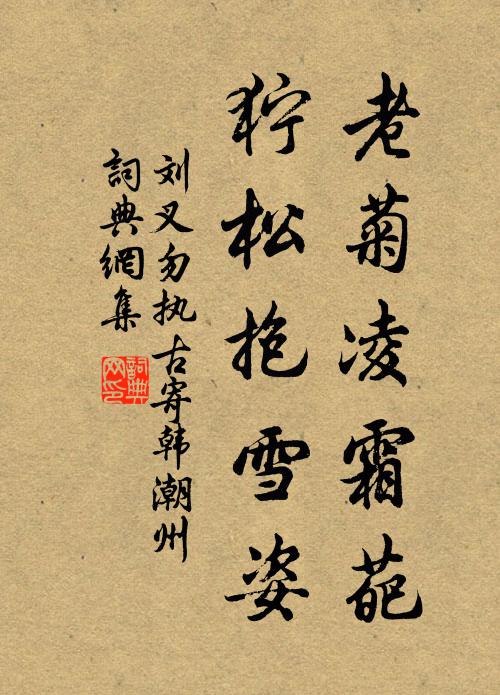 老菊凌霜葩
狞松抱雪姿
刘叉勿执古寄韩潮州
詞典網集
詞典网印